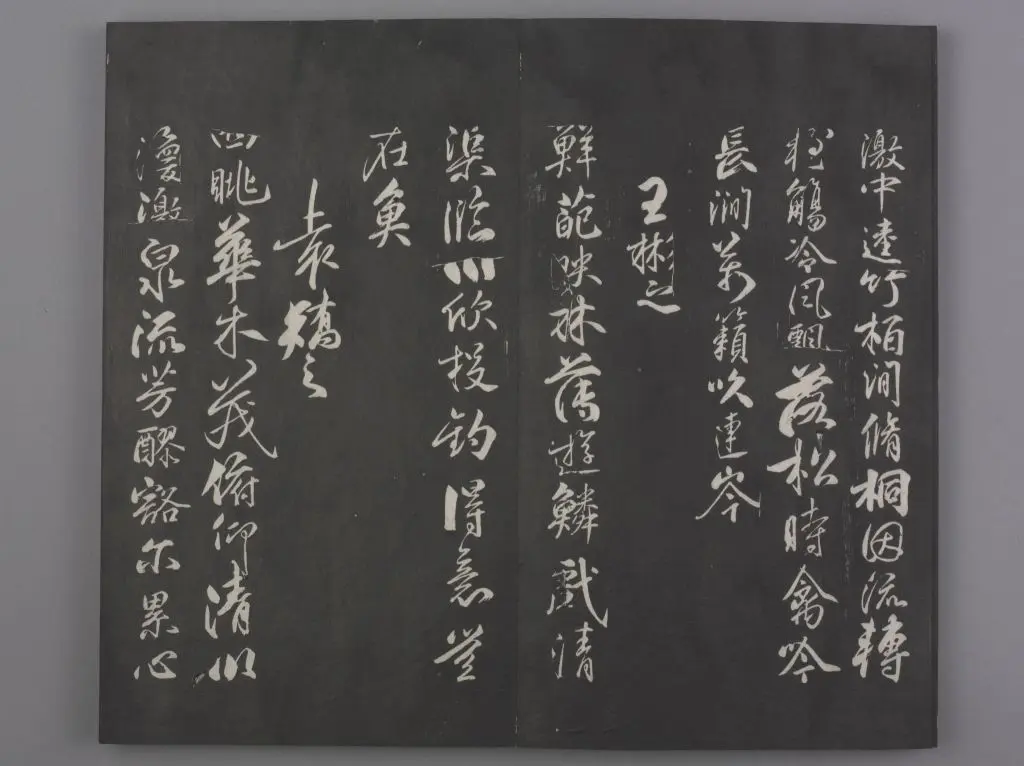 激中逵竹柏澗脩桐因流轉
輕觴冷風飄落松時禽吟
長澗萬籟吹連岑
王彬之
鮮葩映林薄遊鱗戲清
渠臨川欣投釣得意豈
在魚
袁嶠之
四眺華木茂俯仰清川
渙激泉流芳醪豁尔累心